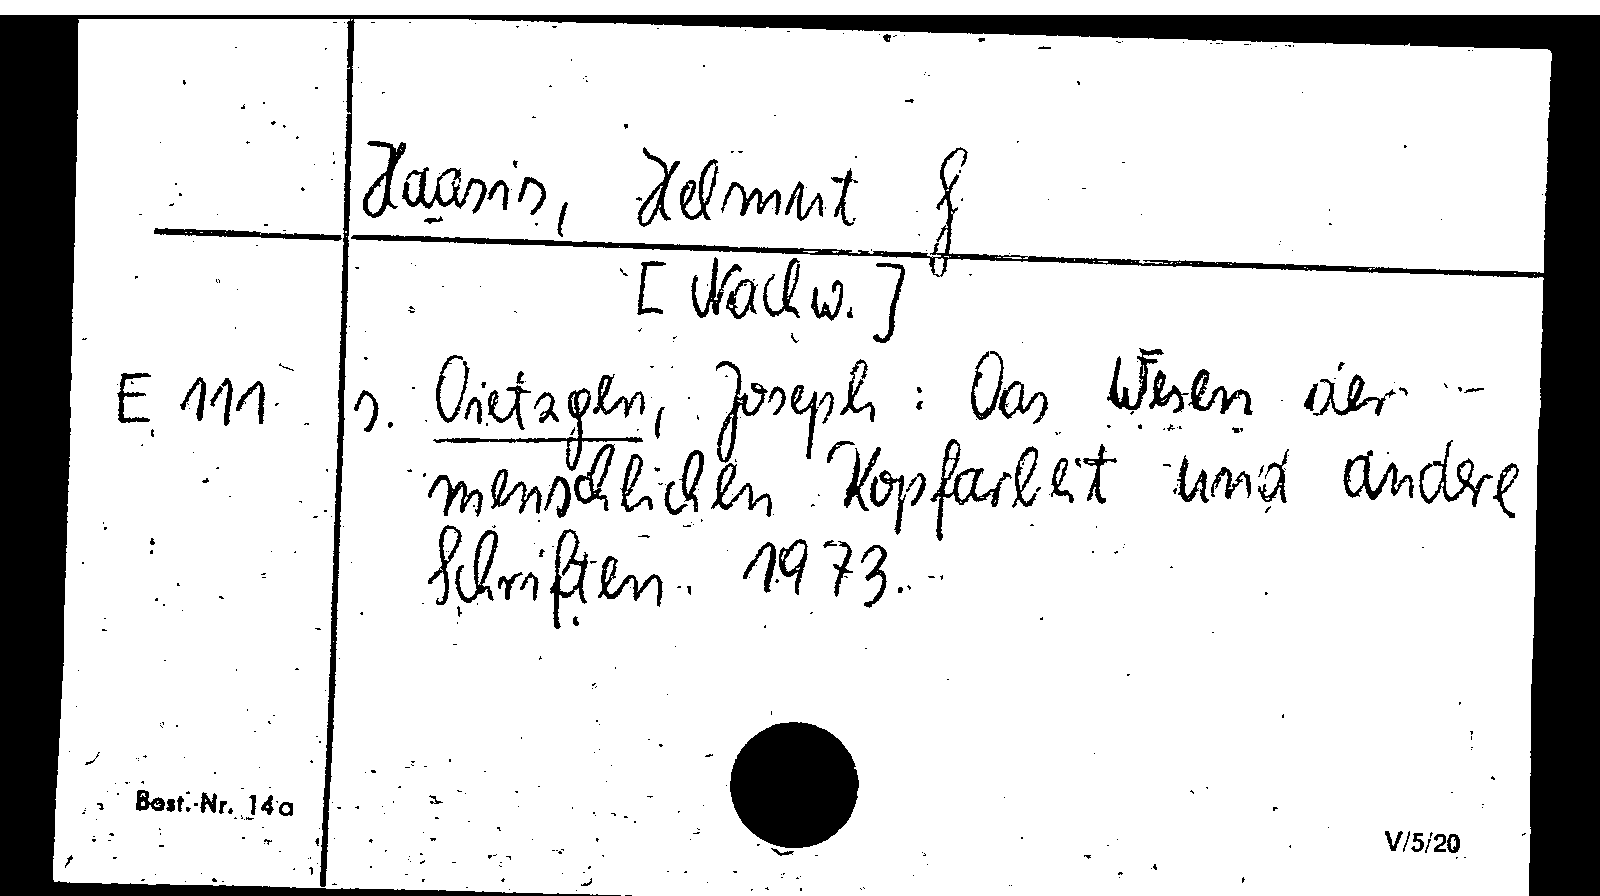 Haasis, Helmut G
[Nachw.]
E 111 s. Dietzgen, Joseph: Das Wesen der
menschlichen Kopfarbeit und andere
Schriften. 1973.
Best.-Nr. 14a
V/5/20